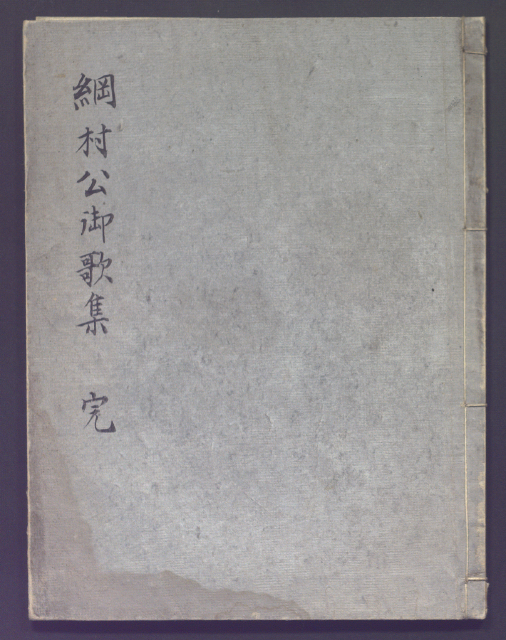 綱村公御歌集 完